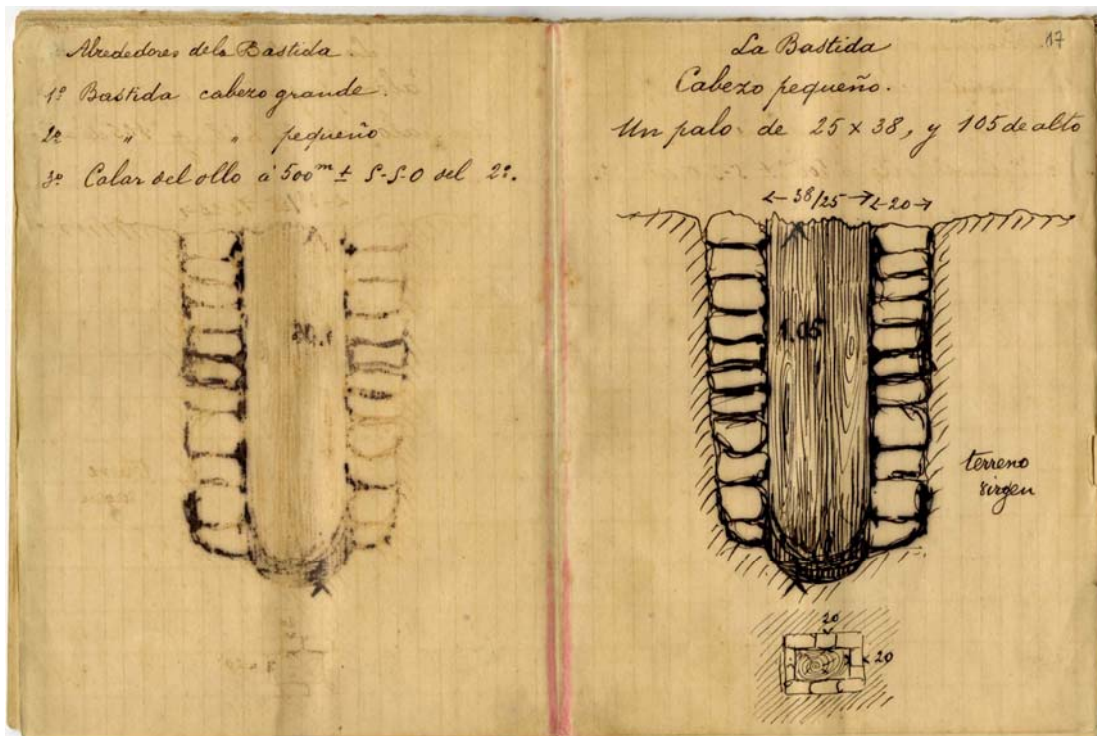 Alrededores de la Bastida.
1º Bastida cabezo grande.
2º " " pequeño
3º Calar del ollo á 500m ± S-S-O del 2º.
17
La Bastida
Cabezo pequeño.
Un palo de 25 x 38, y 105 de alto
38/25
20
1.05
terreno
virgen
20
20